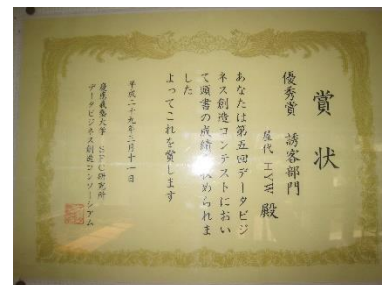 賞状
優秀賞 誘客部門
屋代 HYW 殿
あなたは第五回データビジ
ネス創造コンテストにおい
て頭書の成績を収められま
した
よってこれを賞します
平成二十九年三月十一日
慶應義塾大学 SFC研究所
データビジネス創造コンソーシアム